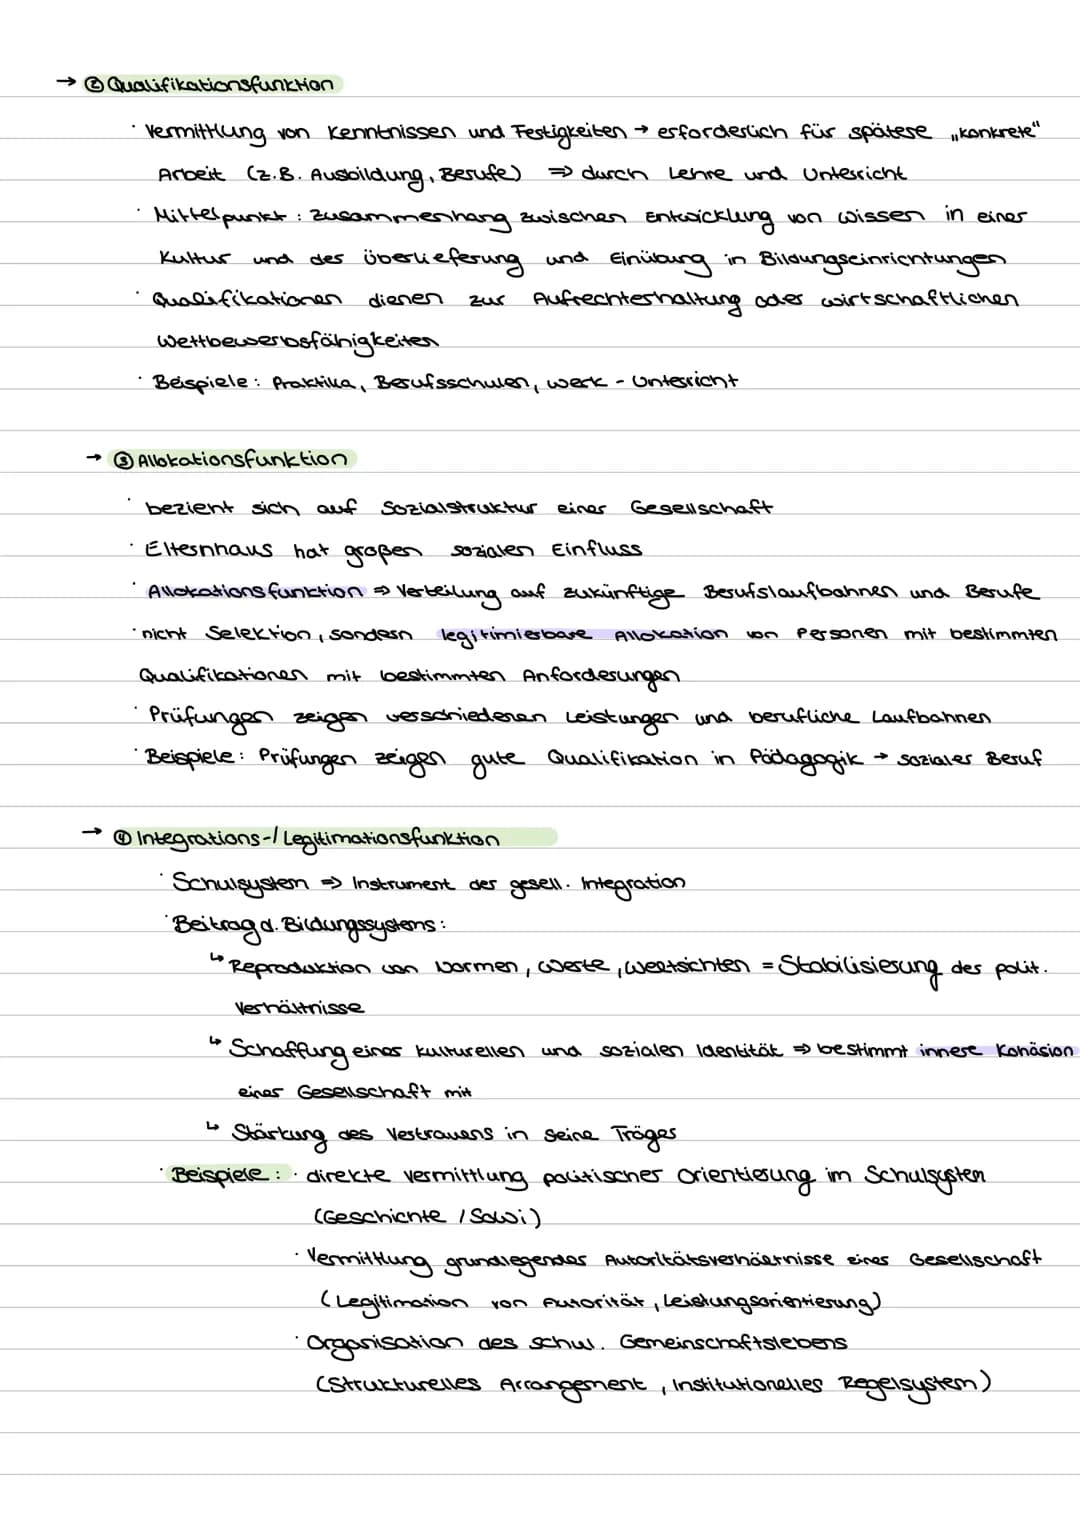 → ② Qualifikationsfunktion
· Vermittlung von Kenntnissen und Festigkeiten → erforderlich für spätere „konkrete"
Arbeit (z.B. Ausbildung, Berufe) ⇒ durch Lehre und Unterricht
· Mittelpunkt: Zusammenhang zwischen Entwicklung von Wissen in einer
Kultur und der Überlieferung und Einübung in Bildungseinrichtungen
· Qualifikationen dienen zur Aufrechterhaltung oder wirtschaftlichen
Wettbewerbsfähigkeiten
· Beispiele: Praktika, Berufsschulen, Werk-Unterricht
→ ③ Allokationsfunktion
· bezieht sich auf Sozialstruktur einer Gesellschaft
· Elternhaus hat großen sozialen Einfluss
· Allokationsfunktion ⇒ Verteilung auf zukünftige Berufslaufbahnen und Berufe
· nicht Selektion, sondern legitimierbare Allokation von Personen mit bestimmten
Qualifikationen mit bestimmten Anforderungen
· Prüfungen zeigen verschiedenen Leistungen und berufliche Laufbahnen
· Beispiele: Prüfungen zeigen gute Qualifikation in Pädagogik → sozialer Beruf
→ ④ Integrations-/Legitimationsfunktion
· Schulsystem ⇒ Instrument der gesell. Integration
· Beitrag d. Bildungssystems:
↳ Reproduktion von Normen, Werte, Weltsichten = Stabilisierung der polit.
Verhältnisse
↳ Schaffung einer kulturellen und sozialen Identität ⇒ bestimmt innere Kohäsion
einer Gesellschaft mit
↳ Stärkung des Vertrauens in seine Träger
· Beispiele: · direkte Vermittlung politischer Orientierung im Schulsystem
(Geschichte / SoWi)
· Vermittlung grundlegender Autoritätsverhältnisse einer Gesellschaft
(Legitimation von Autorität, Leistungsorientierung)
· Organisation des schul. Gemeinschaftslebens
(Strukturelles Arrangement, Institutionelles Regelsystem)